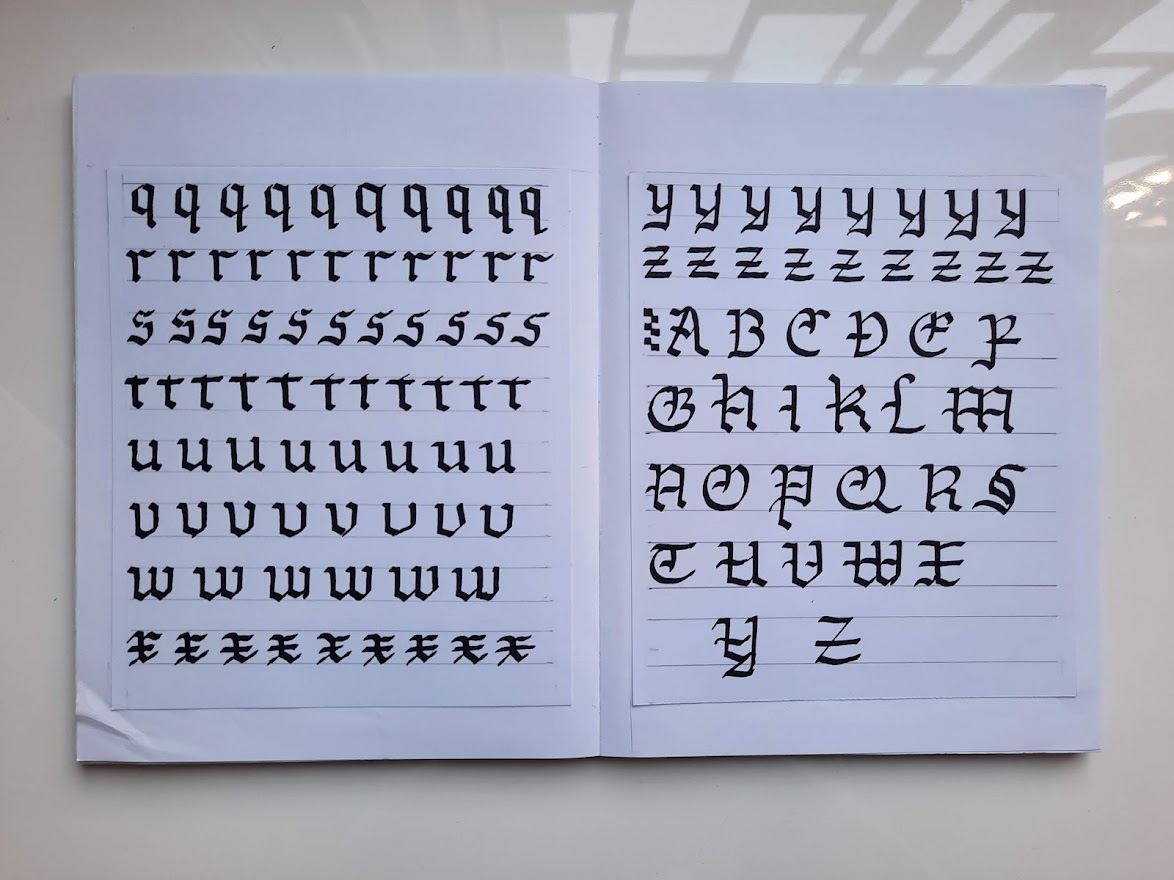 q q q q q q q q q q
r r r r r r r r r r r
s s s s s s s s s s s
t t t t t t t t t t t
u u u u u u u u
v v v v v v v v
w w w w w w
x x x x x x x x x
y y y y y y y y
z z z z z z z z z
A B C D E F
G H I K L M
N O P Q R S
T U V W X
Y Z